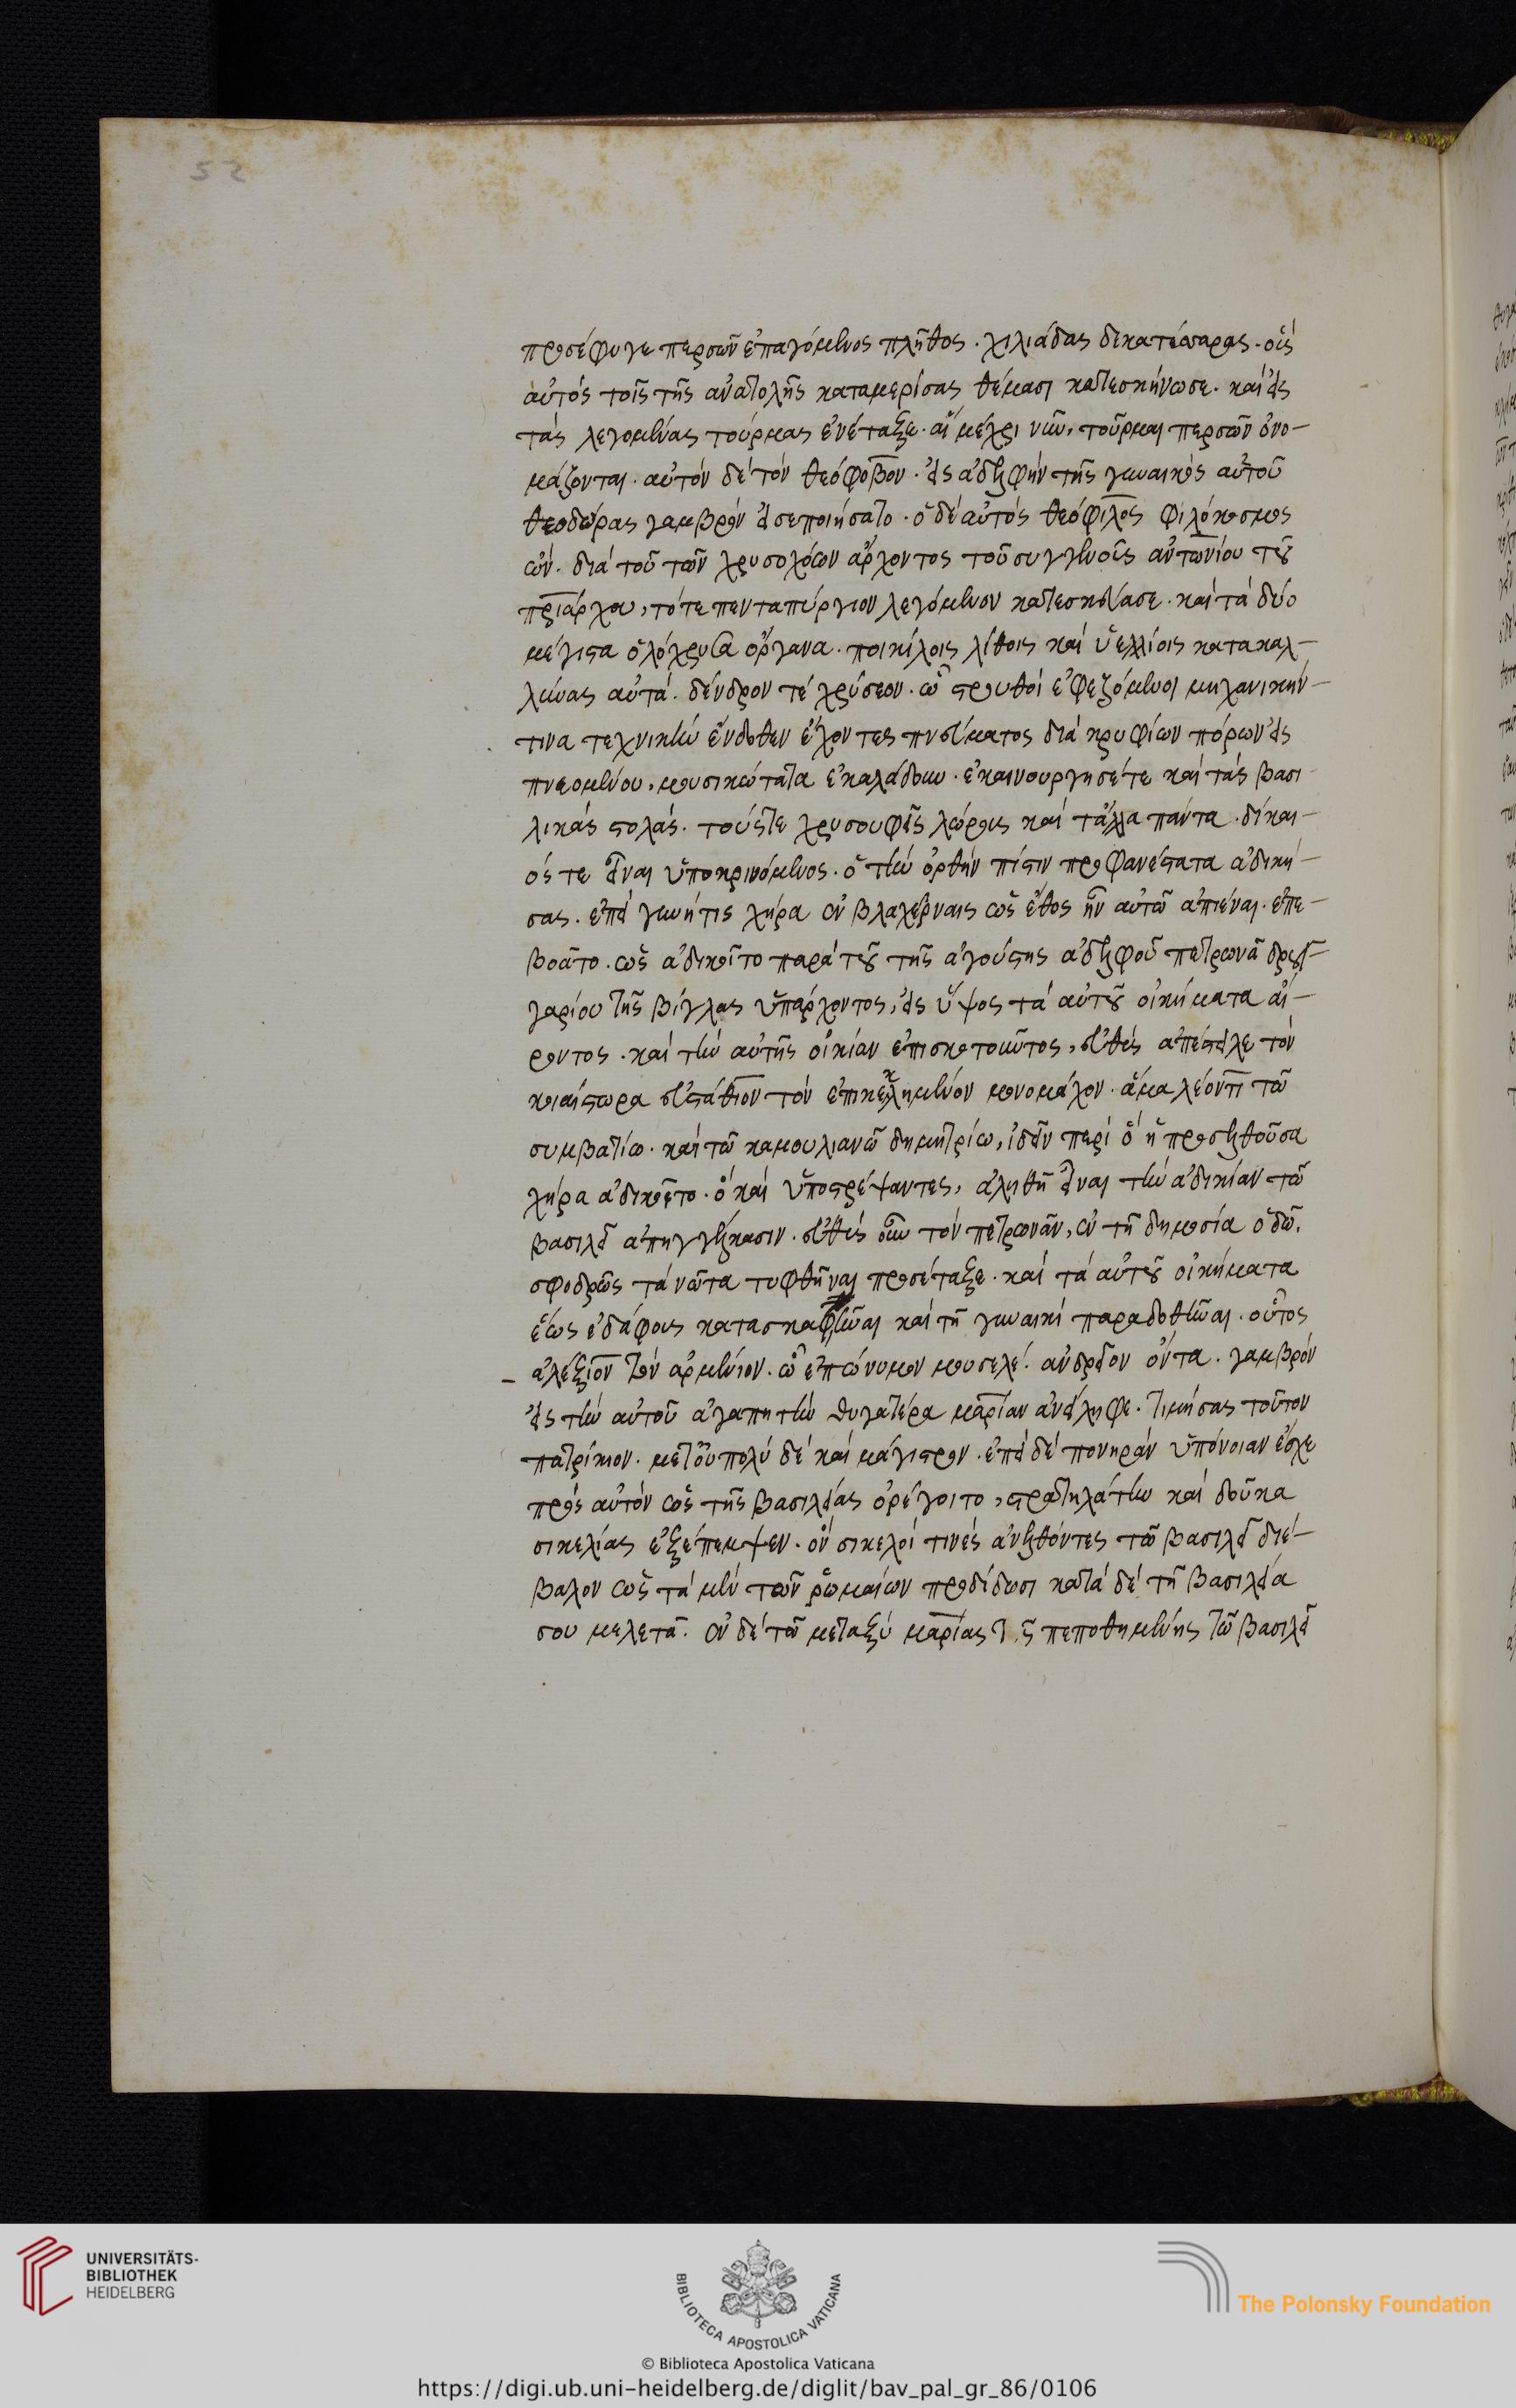 52
προσέφυγε περσῶν ἐπαγόμενος πλῆθος . χιλιάδας δεκατέσσαρας . οὓς
αὐτός τοῖς τῆς ἀνατολῆς καταμερίσας θέμασι κατεσκήνωσε . καὶ εἰς
τὰς λεγομένας τούρμας ἐνέταξε . αἳ μέχρι νῦν, τοῦρμαι περσῶν ὀνο-
μάζονται . αὐτόν δὲ τόν θεόφοβον . εἰς ἀδελφήν τῆς γυναικός αὐτοῦ
θεοδώρας γαμβρόν εἰσεποιήσατο . ὁ δὲ αὐτός θεόφιλος φιλόκοσμος
ὤν . διά τοῦ τῶν χρυσοχόων ἄρχοντος τοῦ συγγενοῦς ἀντωνίου τοῦ
πριάρχου, τό τε πενταπύργιον λεγόμενον κατεσκεύασε . καὶ τά δύο
μέγιστα ὁλόχρυσα ὄργανα . ποικίλοις λίθοις καὶ ὑελλίοις κατακαλ-
λύνας αὐτά . δένδρον τέ χρύσεον . ᾧ στρουθοί ἐφεζόμενοι μηχανικήν
τινα τεχνικήν ἔνδοθεν ἔχοντες πνεύματος διά κρυφίων πόρων εἰς
πνεομένου, μουσικώτατα ἐκαλάδουν . ἐκαινούργησέ τε καὶ τάς βασι
λικάς στολάς . τούς τε χρυσουφεῖς λώρους καὶ τἄλλα πάντα . δίκαι-
ός τε εἶναι ὑποκρινόμενος . ὁ τήν ὀρθήν πίστιν προφανέστατα ἀδική-
σας . ἐπεί γυνή τις χήρα ἐν βλαχέρναις ὡς ἔθος ἦν αὐτῷ ἀπιέναι . ἐπε-
βοᾶτο . ὡς ἀδικοῖτο παρά τοῦ τῆς αὐγούστης ἀδελφοῦ πετρωνᾶ δρουγ-
γαρίου τῆς βίγλας ὑπάρχοντος, εἰς ὕψος τά αὐτοῦ οἰκήματα αἴ-
ροντος . καὶ τήν αὐτῆς οἰκίαν ἐπισκοτοῦντος, εὐθύς ἀπέστειλε τόν
κοιαίστωρα εὐστάθιον τόν ἐπικεκλημένον μονομάχον . ἅμα λέοντι τῷ
συμβατίῳ . καὶ τῷ καμουλιανῷ δημητρίῳ, ἰδεῖν περί ὅ ἡ προσελθοῦσα
χήρα ἀδικοῖτο . ὅ καὶ ὑποστρέψαντες, ἀληθῆ εἶναι τήν ἀδικίαν τῷ
βασιλεῖ ἀπηγγέλκασιν . εὐθύς οὖν τόν πετρωνᾶν, ἐν τῇ δημοσίᾳ ὁδῷ,
σφοδρῶς τά νῶτα τυφθῆναι προσέταξε . καὶ τά αὐτοῦ οἰκήματα
ἕως ἐδάφους κατασκαφῆναι καὶ τῇ γυναικί παραδοθῆναι . οὗτος
ἀλέξιον τόν ἀρμένιον . ᾧ ἐπώνυμον μουσελέ . ἀνδρεῖον ὄντα . γαμβρόν
εἰς τήν αὐτοῦ ἀγαπητήν θυγατέρα μαρίαν ἀνείληφε . τιμήσας τοῦτον
πατρίκιον . μετ' οὐπολύ δὲ καὶ μάγιστρον . ἐπεί δὲ πονηράν ὑπόνοιαν ἔσχε
πρός αὐτόν ὡς τῆς βασιλείας ὀρέγοιτο, στρατηλάτην καὶ δοῦκα
σικελίας ἐξέπεμψεν . ὅν σικελοί τινές ἀνελθόντες τῷ βασιλεῖ διέ-
βαλον ὡς τά μέν τῶν ῥωμαίων προδίδωσι κατά δὲ τῇ βασιλεία
σου μελετᾷ . ἐν δὲ τῷ μεταξύ μαρίας τῆς πεποθημένης τῷ βασιλεῖ
UNIVERSITÄTS-
BIBLIOTHEK
HEIDELBERG
BIBLIOTECA APOSTOLICA VATICANA
The Polonsky Foundation
© Biblioteca Apostolica Vaticana
https://digi.ub.uni-heidelberg.de/diglit/bav_pal_gr_86/0106